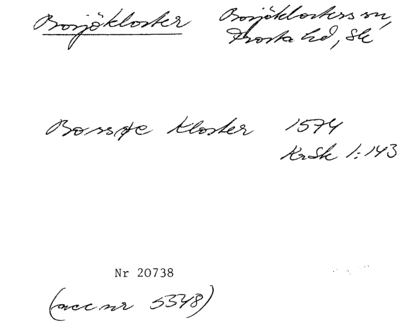 Bosjökloster
Bosjöklosters sn,
Frosta hd, Sk
Bossøe Kloster 1574
KrSk 1:143
Nr 20738
(acc nr 5348)